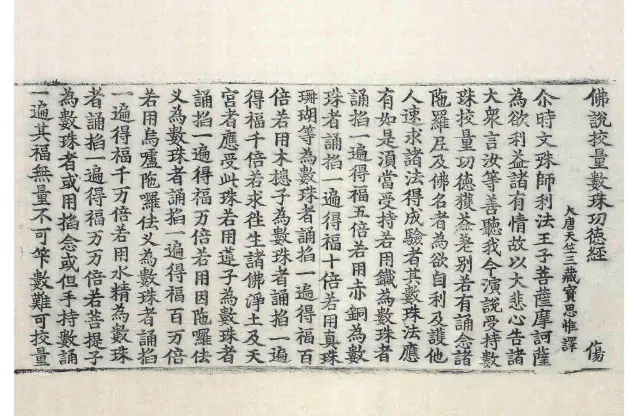 佛說挍量數珠功德經 傷
大唐天竺三藏寶思惟譯
尒時文殊師利法王子菩薩摩訶薩
為欲利益諸有情故以大悲心告諸
大衆言汝等善聽我今演說受持數
珠挍量功德獲益差別若有誦念諸
陁羅尼及佛名者為欲自利及護他
人速求諸法得成驗者其數珠法應
有如是湏當受持若用鐵為數珠者
誦掐一遍得福五倍若用赤銅為數
珠者誦掐一遍得福十倍若用真珠
珊瑚等為數珠者誦掐一遍得福百
倍若用木槵子為數珠者誦掐一遍
得福千倍若求徃生諸佛淨土及天
宮者應受此珠若用蓮子為數珠者
誦掐一遍得福万倍若用因陁囉佉
叉為數珠者誦掐一遍得福百万倍
若用烏盧陁囉佉叉為數珠者誦掐
一遍得福千万倍若用水精為數珠
者誦掐一遍得福万万倍若菩提子
為數珠者或用掐念或但手持數誦
一遍其福無量不可筭數難可挍量